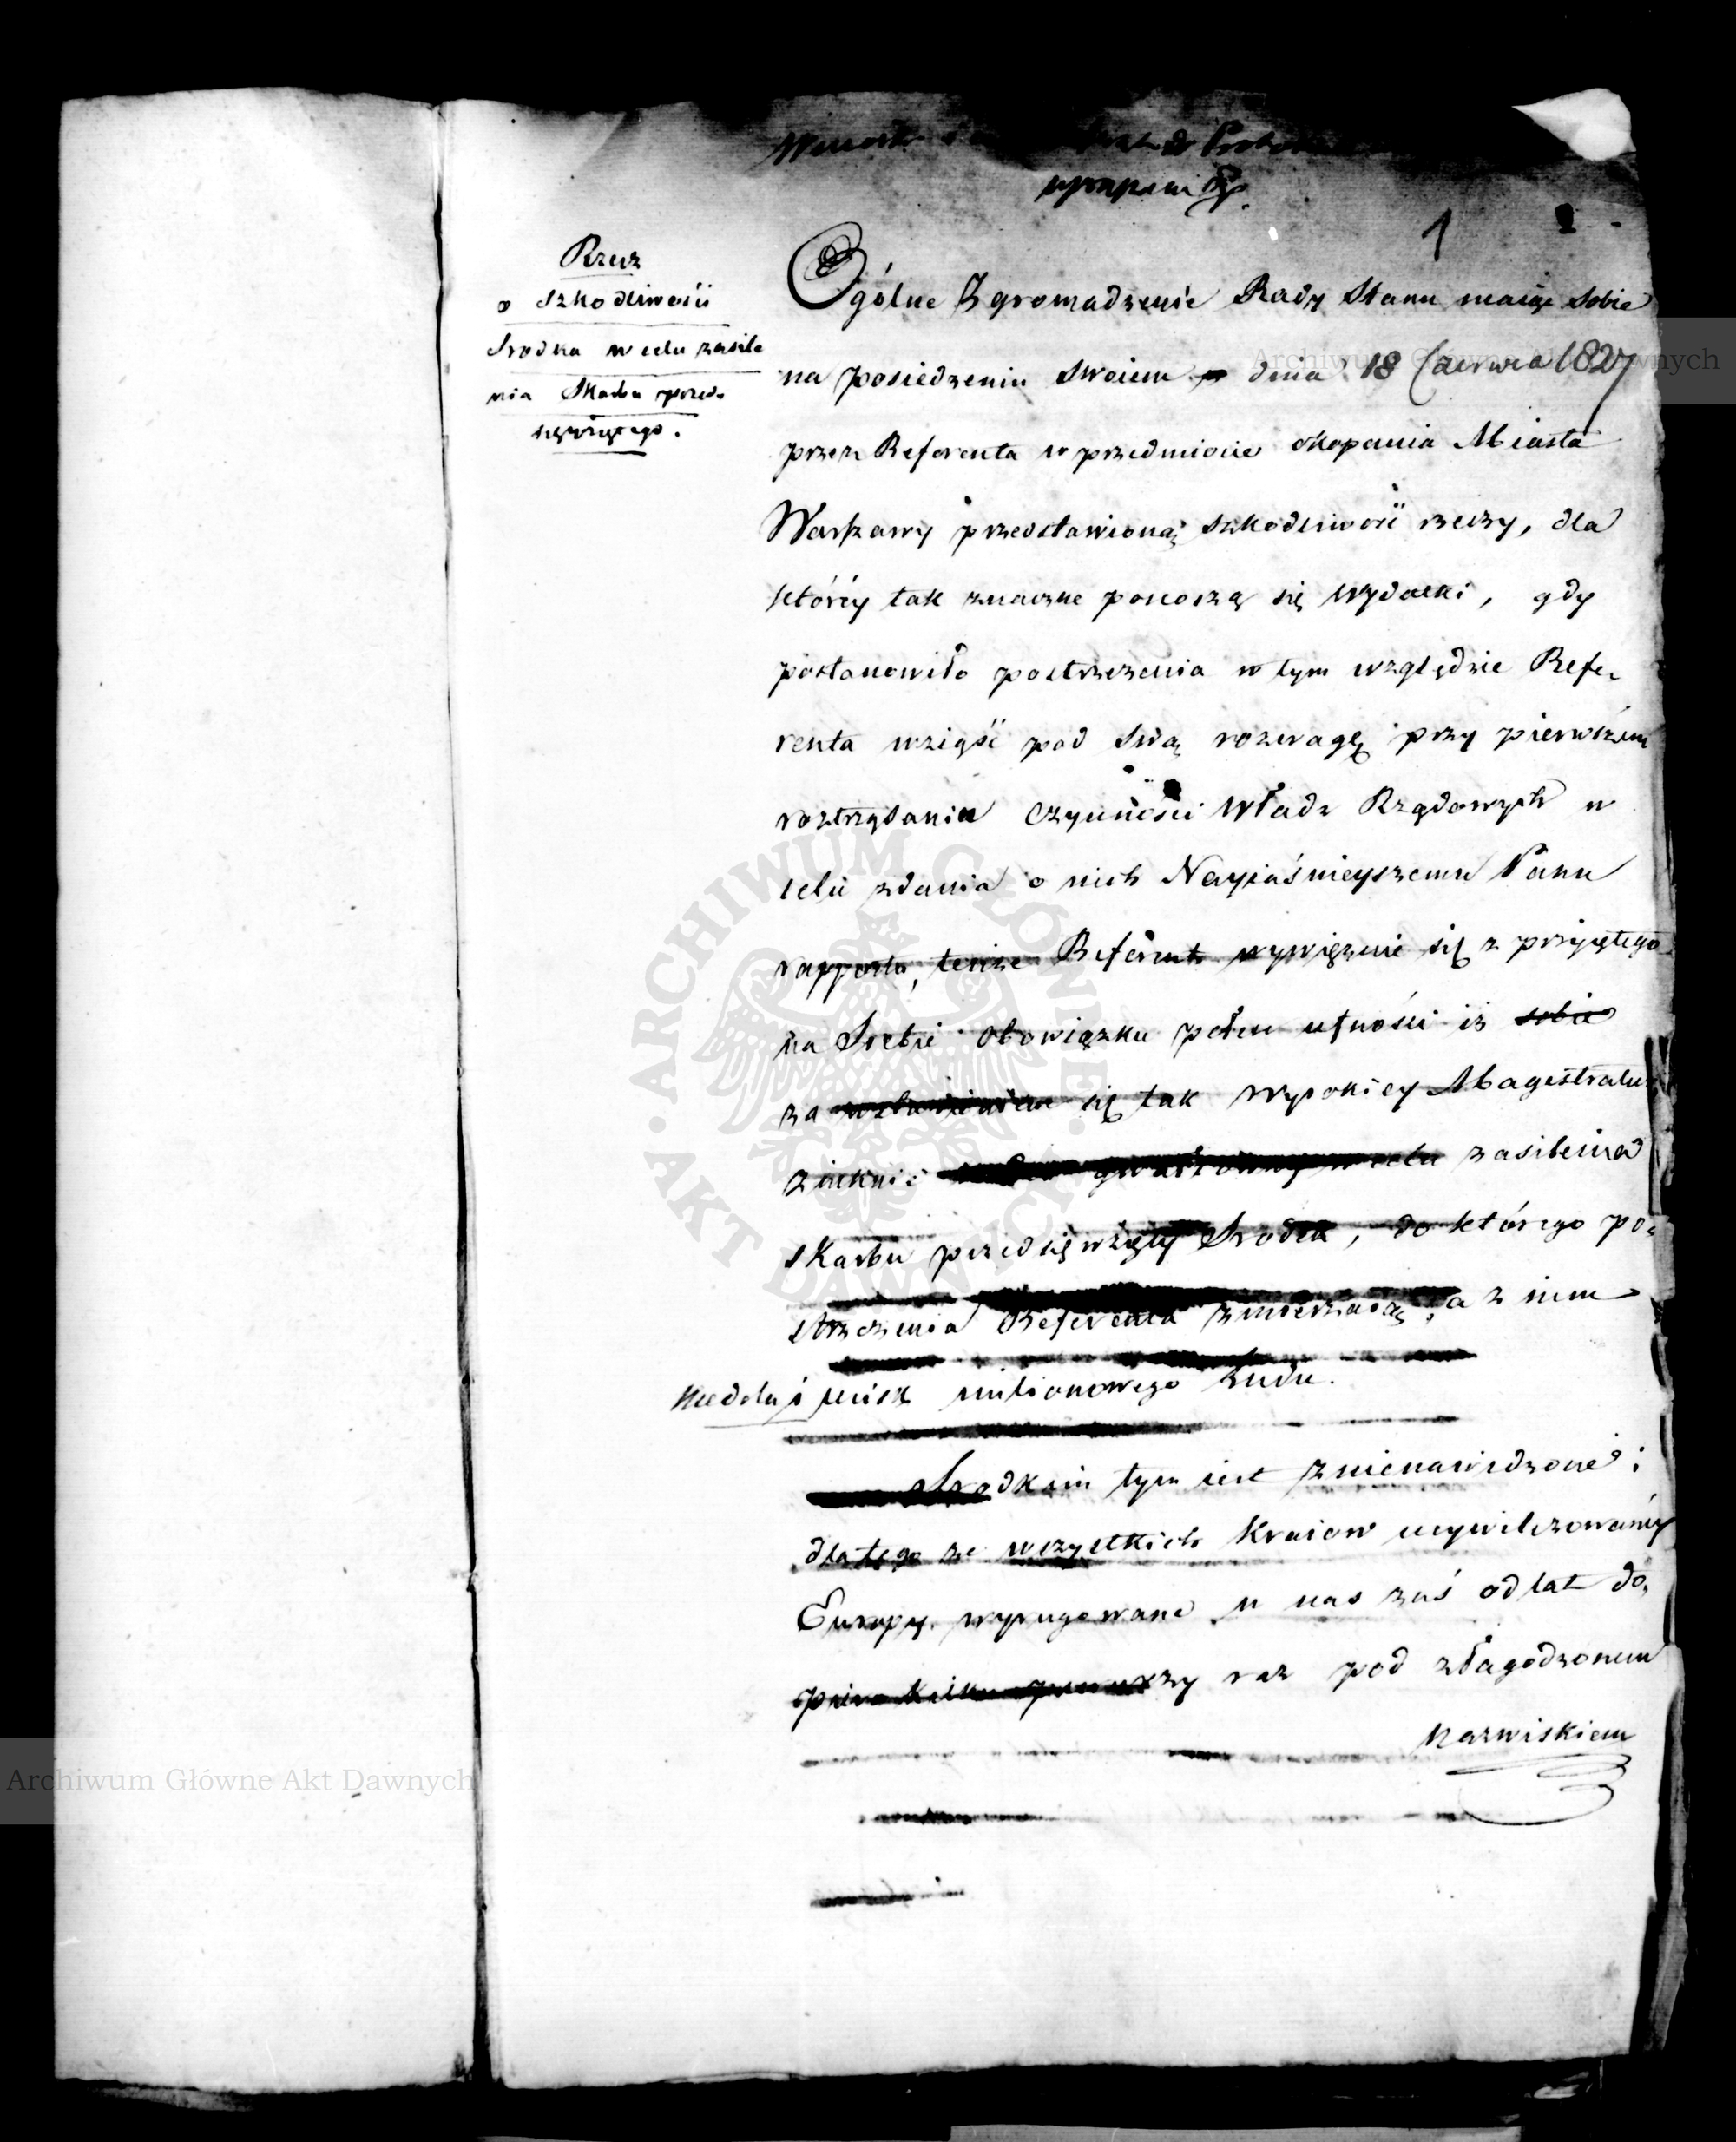 1
Rzecz
o Szkodliwości
Srodka w celu zasile
nia Skarbu przed-
sięwziętego.
Ogólne Zgromadzenie Rady Stanu maiąc sobie
na posiedzeniu swoiem dnia 18 Czerwca 1827
przez Referenta w przedmiocie okopania Miasta
Warszawy przedstawioną szkodliwość rzeczy, dla
któréy tak znaczne ponoszą się wydatki, gdy
postanowiło postrzeżenia w tym względzie Refe-
renta wziąść pod swą rozwagę przy pierwszem
roztrząsaniu czynności Władz Rządowych w
celu zdania o nich Nayiaśnieyszemu Panu
rapportu, tenże Referent wywięzuie się z przyiętego
na Siebie obowiązku pełen ufności iż sobie
za się tak wysokiey Magistratury
zniknie zasilenia
skarbu przedsięwzięty Srodek, do którego po-
strzeżenia Referenta zmierzaią, a z nim
niedola i ucisk milionowego ludu.
Srodkiem tym iest znienawidzone i
dlatego ze wszystkich kraiow ucywilizowanéy
Europy wyrugowane u nas zaś od lat do-
piero kilku pierwszy raz pod złagodzonem
nazwiskiem
Archiwum Główne Akt Dawnych
Archiwum Główne Akt Dawnych
ARCHIWUM GŁÓWNE AKT DAWNYCH